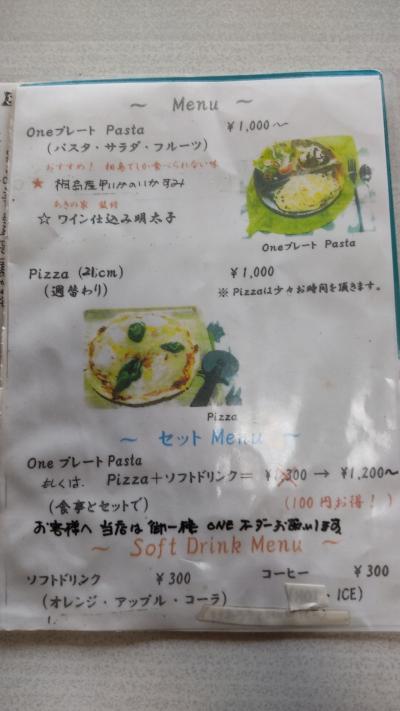 ～ Menu ～
Oneプレート Pasta ￥1,000～
(パスタ・サラダ・フルーツ)
おすすめ！ 相島でしか食べられない味
★ 相島産甲いかのいかすみ
あきの家 監修
☆ ワイン仕込み明太子
Oneプレート Pasta
Pizza (21cm) ￥1,000
(週替わり) ※ Pizzaは少々お時間を頂きます。
Pizza
～ セット Menu ～
One プレート Pasta
もしくは、 Pizza＋ソフトドリンク＝ ￥1,300 → ￥1,200～
(食事とセットで) (100円お得！)
お客様へ 当店は 御一人様 ONE オーダーお願いします
～ Soft Drink Menu ～
ソフトドリンク ￥300 コーヒー ￥300
(オレンジ・アップル・コーラ) ・ICE)